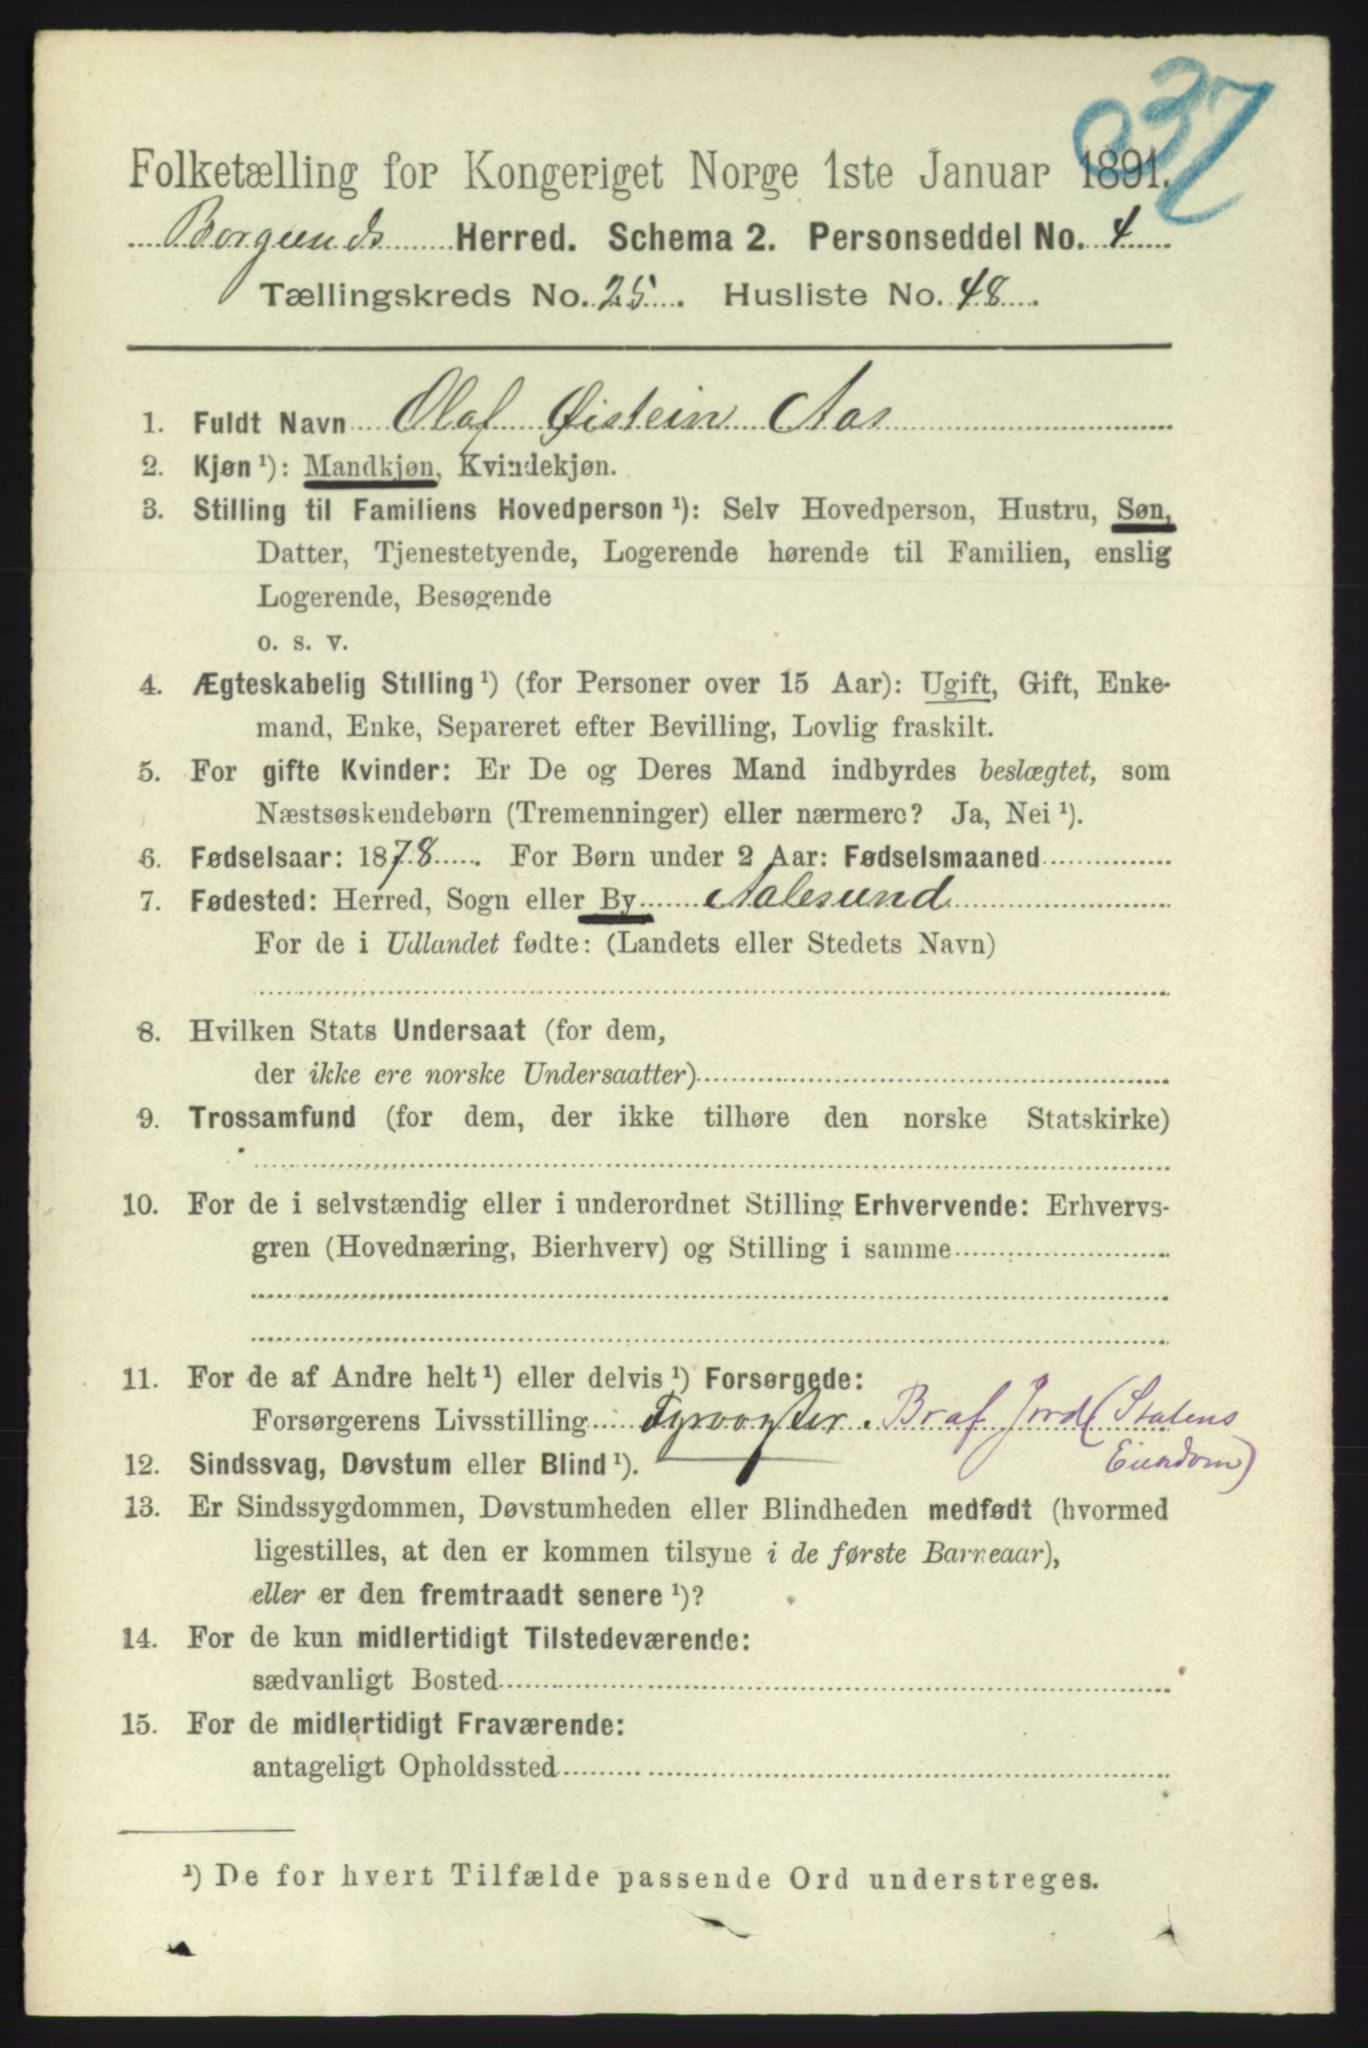 037
Folketælling for Kongeriget Norge 1ste Januar 1891.
Borgunds Herred. Schema 2. Personseddel No. 4
Tællingskreds No. 25. Husliste No. 48.
1. Fuldt Navn Olaf Øistein Aas
2. Kjøn ¹): Mandkjøn, Kvindekjøn.
3. Stilling til Familiens Hovedperson ¹): Selv Hovedperson, Hustru, Søn,
Datter, Tjenestetyende, Logerende hørende til Familien, enslig
Logerende, Besøgende
o. s. v.
4. Ægteskabelig Stilling ¹) (for Personer over 15 Aar): Ugift, Gift, Enke-
mand, Enke, Separeret efter Bevilling, Lovlig fraskilt.
5. For gifte Kvinder: Er De og Deres Mand indbyrdes beslægtet, som
Næstsøskendebørn (Tremenninger) eller nærmere? Ja, Nei ¹).
6. Fødselsaar: 1878. For Børn under 2 Aar: Fødselsmaaned
7. Fødested: Herred, Sogn eller By Aalesund
For de i Udlandet fødte: (Landets eller Stedets Navn)
8. Hvilken Stats Undersaat (for dem,
der ikke ere norske Undersaatter)
9. Trossamfund (for dem, der ikke tilhøre den norske Statskirke)
10. For de i selvstændig eller i underordnet Stilling Erhvervende: Erhvervs-
gren (Hovednæring, Bierhverv) og Stilling i samme
11. For de af Andre helt ¹) eller delvis ¹) Forsørgede:
Forsørgerens Livsstilling Fyrvogter. Br af Jord (Statens
Eiendom)
12. Sindssvag, Døvstum eller Blind ¹).
13. Er Sindssygdommen, Døvstumheden eller Blindheden medfødt (hvormed
ligestilles, at den er kommen tilsyne i de første Barneaar),
eller er den fremtraadt senere ¹)?
14. For de kun midlertidigt Tilstedeværende:
sædvanligt Bosted
15. For de midlertidigt Fraværende:
antageligt Opholdssted
¹) De for hvert Tilfælde passende Ord understreges.